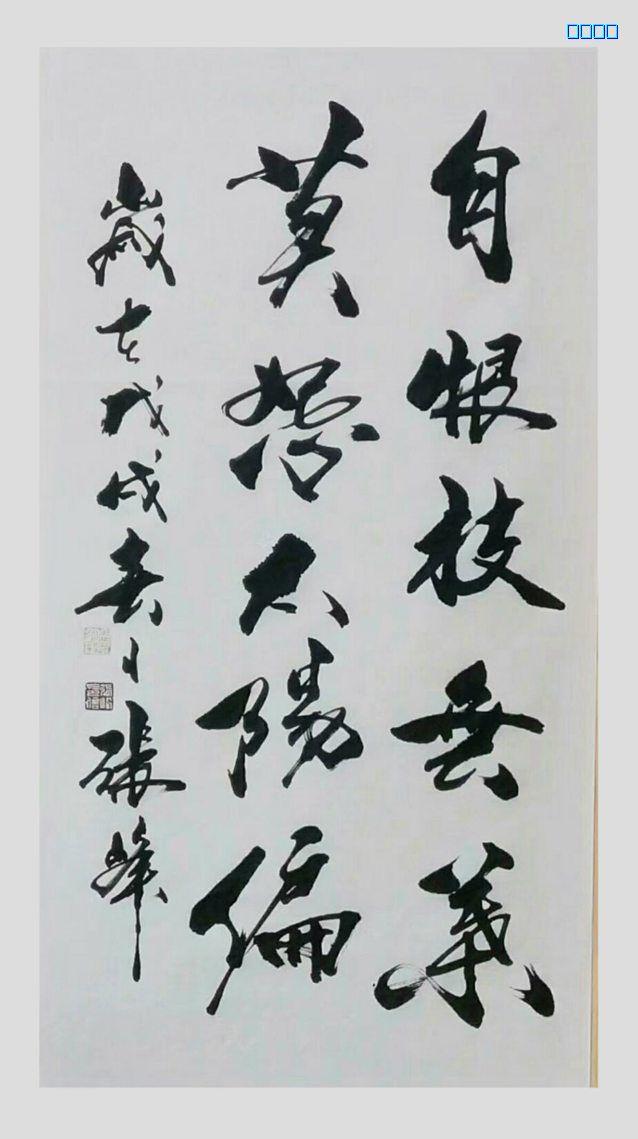 自恨枝無葉
莫怨太陽偏
歲在戊戌春日張峰